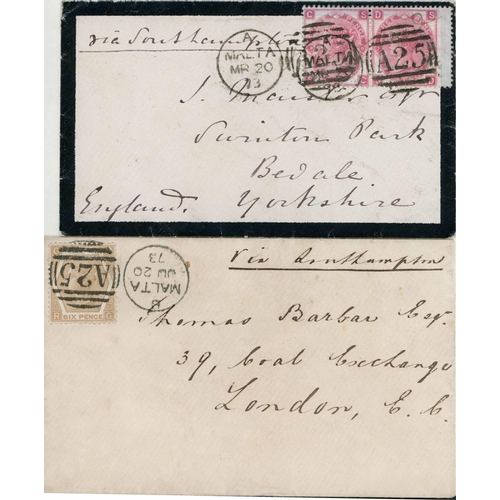 via Southampton
A
MALTA
MR 20
73
C S D S
MALTA
A25
J. Master Esqr
Swinton Park
Bedale
Yorkshire
England.
A25
R SIX PENCE G
B
MALTA
JU 20
73
Via Southampton
Thomas Barbar Esq.
39, Coal Exchange
London, E. C.